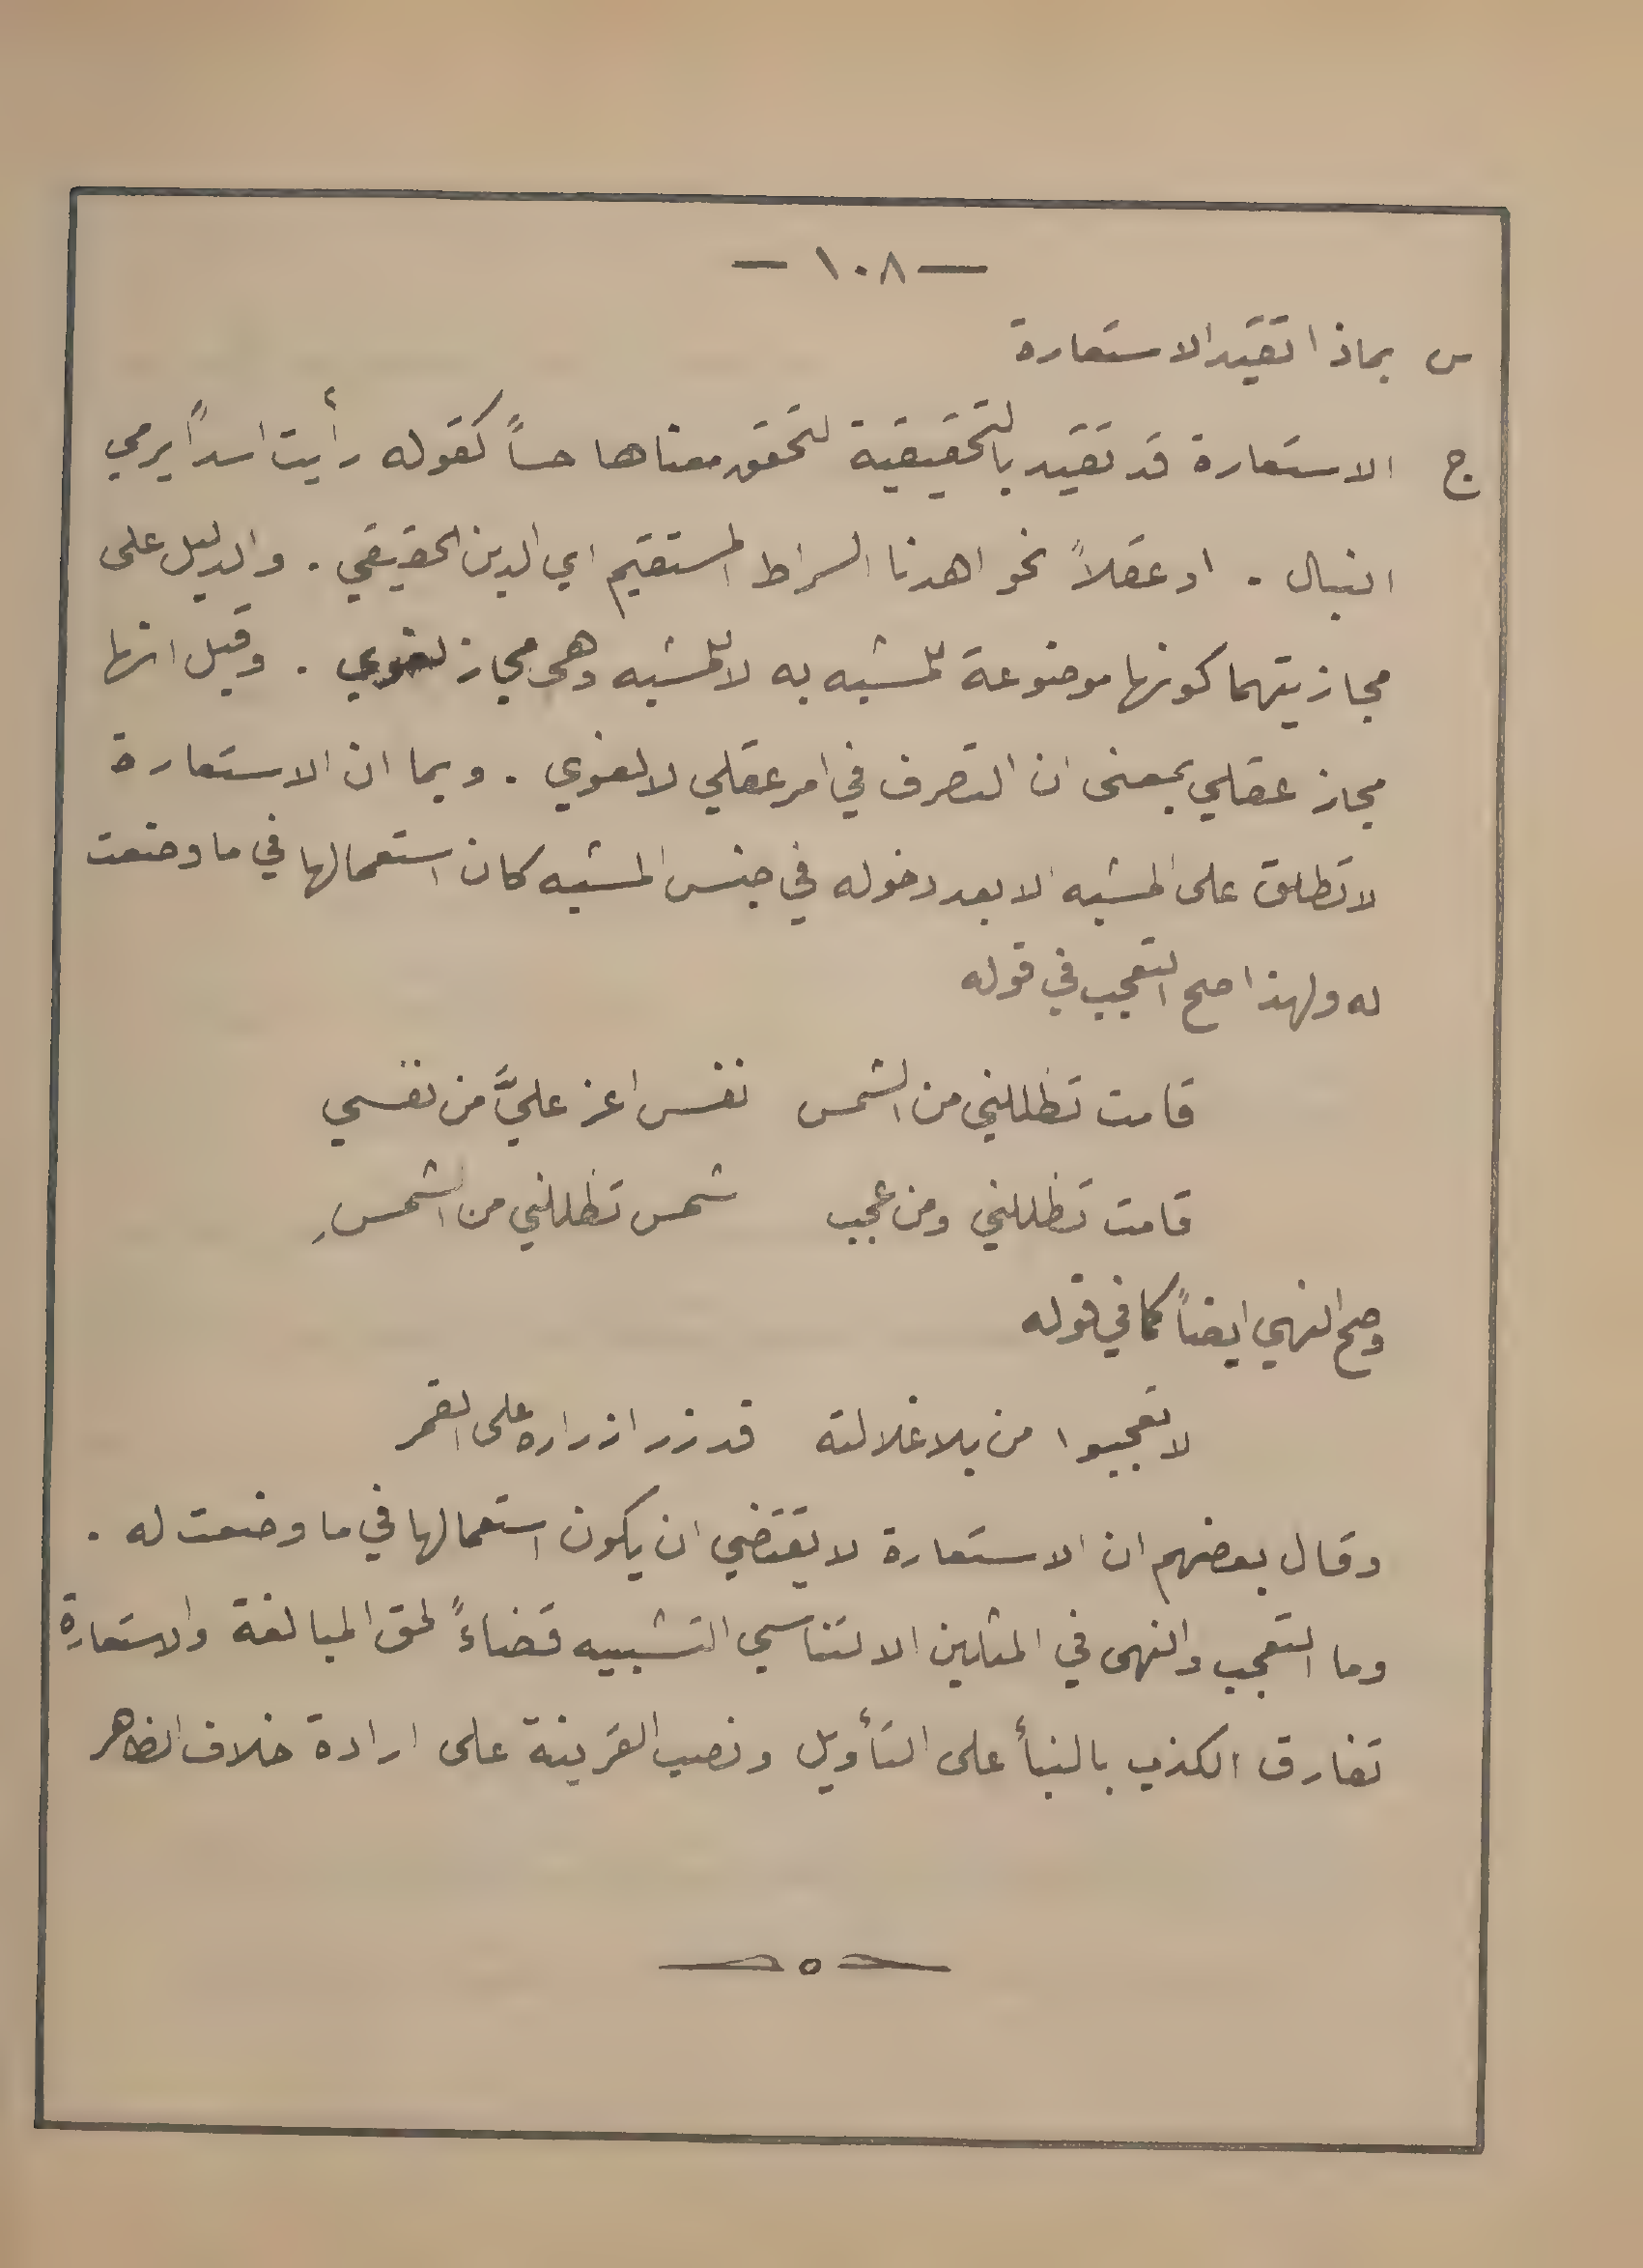 — ١٠٨ —
س بماذا تقيد الاستعارة
ج الاستعارة قد تقيد بالتحقيقية لتحقق معناها حساً كقوله رأيت اسداً يرمي
النبال . او عقلاً نحو اهدنا السراط المستقيم اي الدين الحقيقي . والدليل على
مجازيتهما كونها موضوعة للمشبه به لا للمشبه وهى مجاز لغوي . وقيل انها
مجاز عقلي بمعنى ان التصرف في امر عقلي لا لغوي . وبما ان الاستعارة
لا تطلق على المشبه الا بعد دخوله في جنس المشبه كان استعمالها في ما وضعت
له ولهذا صح التعجب في قوله
قامت تظللني من الشمس نفس اعز عليَّ من نفسي
قامت تظللني ومن عجب شمس تظللني من الشمسِ
وصح النهي ايضاً كما في قوله
لا تعجبوا من بلا غلالته قد زر ازراره على القمر
وقال بعضهم ان الاستعارة لا يقتضي ان يكون استعمالها في ما وضعت له .
وما التعجب والنهى في المثلين الا لتناسي التشبيه قضاءً لحق المبالغة والاستعارة
تفارق الكذب بالنبأ على التأويل ونصب القرينة على ارادة خلاف الظاهر